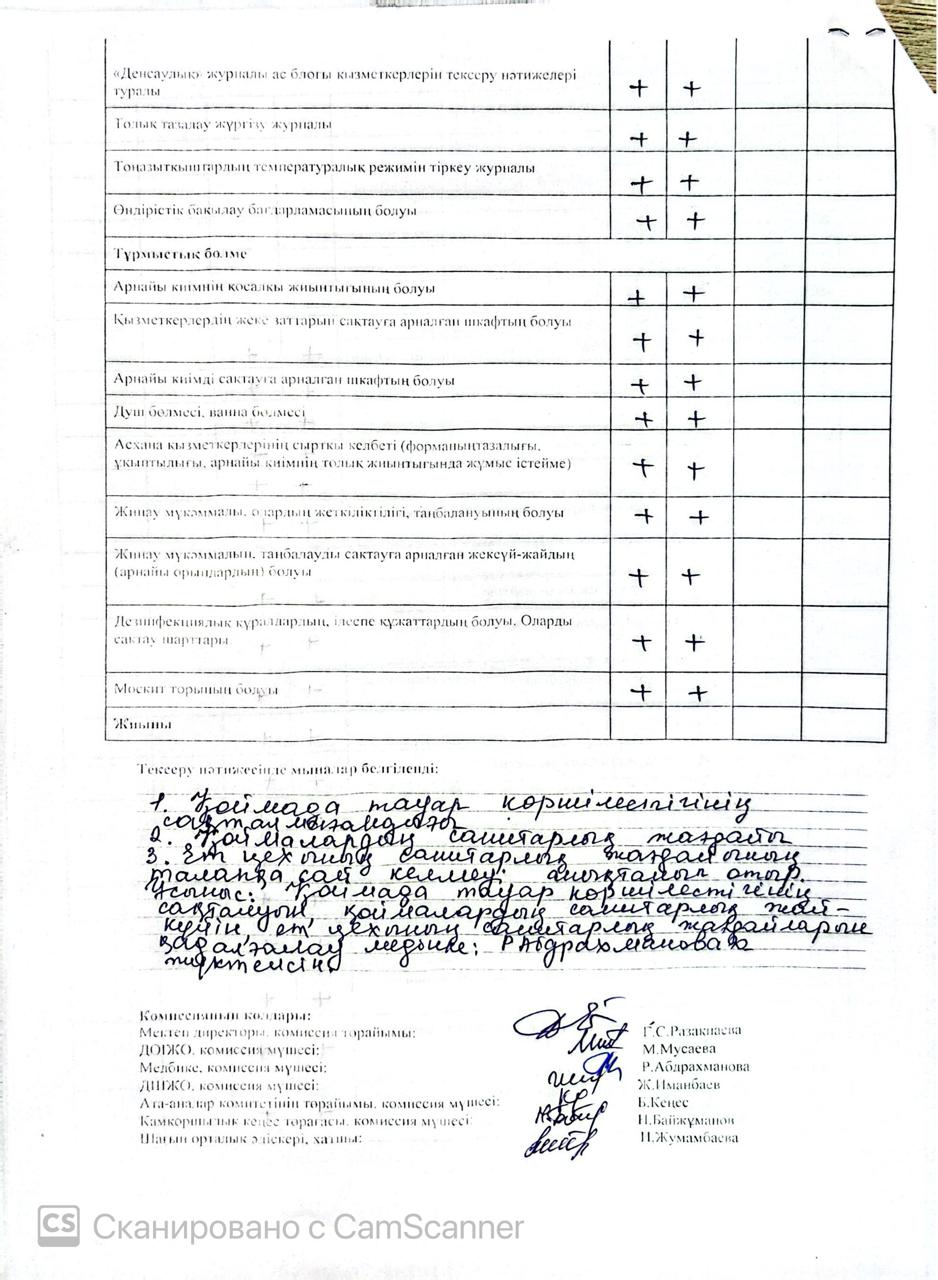 «Денсаулық» журналы ас блогы қызметкерлерін тексеру нәтижелері
туралы + +
Толық тазалау жүргізу журналы + +
Тоңазытқыштардың температуралық режимін тіркеу журналы + +
Өндірістік бақылау бағдарламасының болуы + +
Тұрмыстық бөлме
Арнайы киімнің қосалқы жиынтығының болуы + +
Қызметкерлердің жеке заттарын сақтауға арналған шкафтың болуы + +
Арнайы киімді сақтауға арналған шкафтың болуы + +
Душ бөлмесі, ванна бөлмесі + +
Асхана қызметкерлерінің сыртқы келбеті (форманыңтазалығы,
ұқыптылығы, арнайы киімнің толық жиынтығында жұмыс істейме) + +
Жинау мүкаммалы, олардың жеткіліктілігі, таңбалануының болуы + +
Жинау мүкаммалын, таңбалауды сақтауға арналған жексүй-жайдың
(арнайы орындардың) болуы + +
Дезинфекциялық құралдардың, ілеспе құжаттардың болуы. Оларды
сақтау шарттары + +
Москит торының болуы + +
Жиыны
Тексеру нәтижесінде мыналар белгіленді:
1. Қоймада тауар көршілестігінің
2. Қоймалардың санитарлық жағдайы
3. Ет цехының санитарлық жағдайының
талапқа сай келмеуі анықталып отыр.
Ұсыныс: Қоймада тауар көршілестігінің
сақталуын, қоймалардың санитарлық жай-
күйін, ет цехының санитарлық жағдайларын
қадағалау медбике: Р Абдрахмановаға
жүктелсін.
Комиссияның қолдары:
Мектеп директоры, комиссия торайымы: Г.С.Разакпаева
ДОІЖО, комиссия мүшесі: М.Мусаева
Медбике, комиссия мүшесі: Р.Абдрахманова
ДШЖО, комиссия мүшесі: Ж.Иманбаев
Ата-аналар комитетінің торайымы, комиссия мүшесі: Б.Кеңес
Қамқоршылық кеңес торағасы, комиссия мүшесі: Н.Байжұманов
Шағын орталық әдіскері, хатшы: Н.Жумамбаева
CS Сканировано с CamScanner